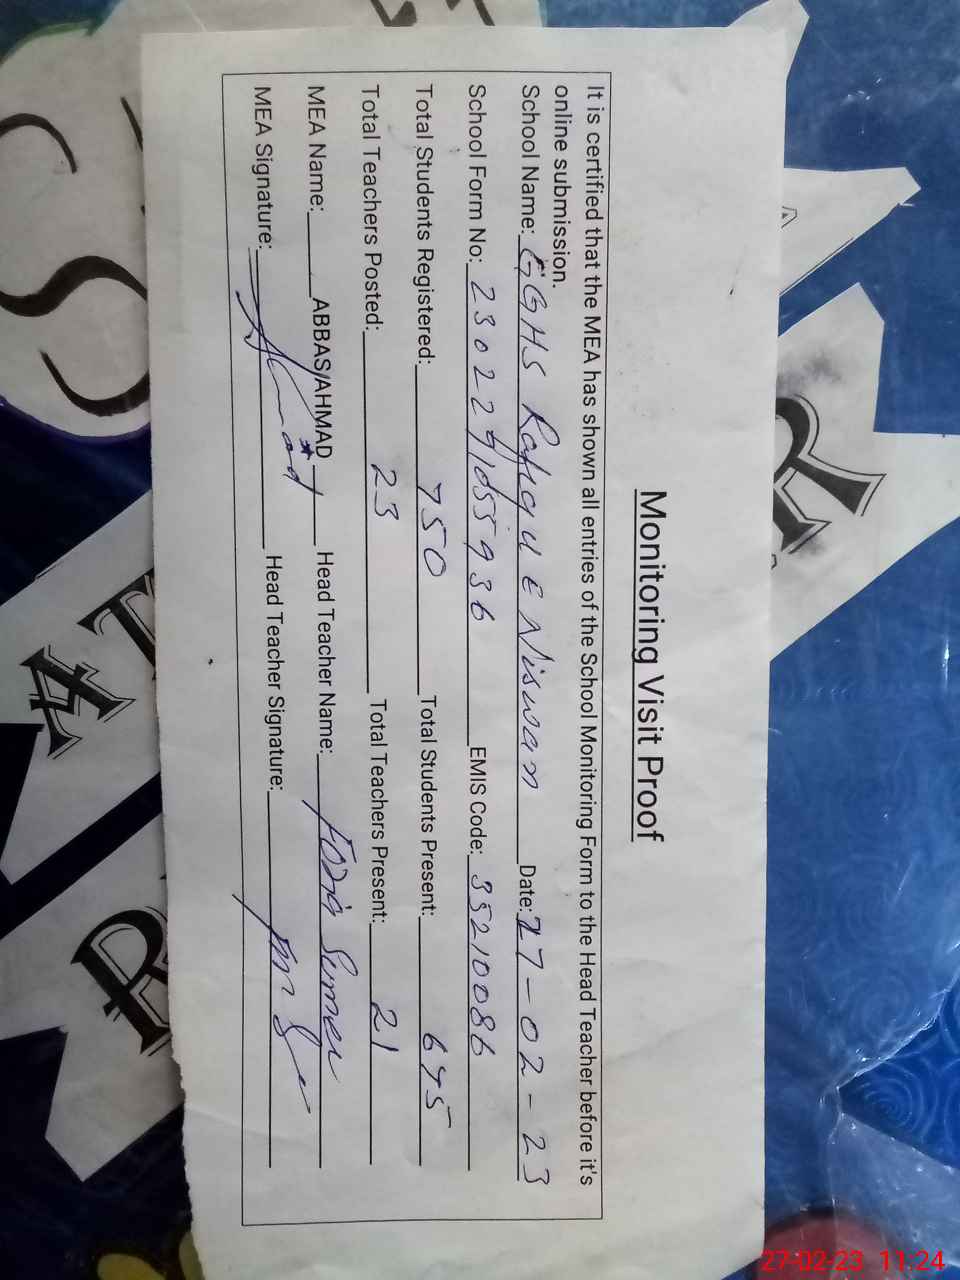 Monitoring Visit Proof
It is certified that the MEA has shown all entries of the School Monitoring Form to the Head Teacher before it's
online submission.
School Name: GGHS Rafiqu E Niswan Date: 27-02-23
School Form No: EMIS Code: 35210086
Total Students Registered: 750 Total Students Present: 645
Total Teachers Posted: 23 Total Teachers Present: 21
MEA Name: ABBAS AHMAD Head Teacher Name:
MEA Signature: Ahmad Head Teacher Signature:
27-02-23 11:24